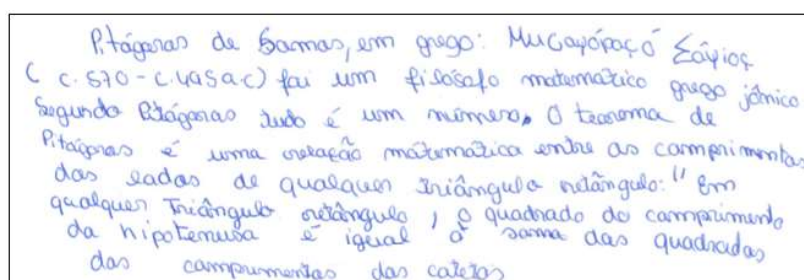 Pitágoras de Samos, em grego: Mucayópaçó Σáyioς
( c. 570 - c. 495 a.c) foi um filósofo matemático grego jônico
Segundo Pitágoras tudo é um número. O teorema de
Pitágoras é uma relação mátemática entre os comprimentos
dos lados de qualquer triângulo retângulo: " Em
qualquer Triângulo retângulo, o quadrado do comprimento
da hipotenusa é igual à soma dos quadrados
dos comprimentos dos catetos